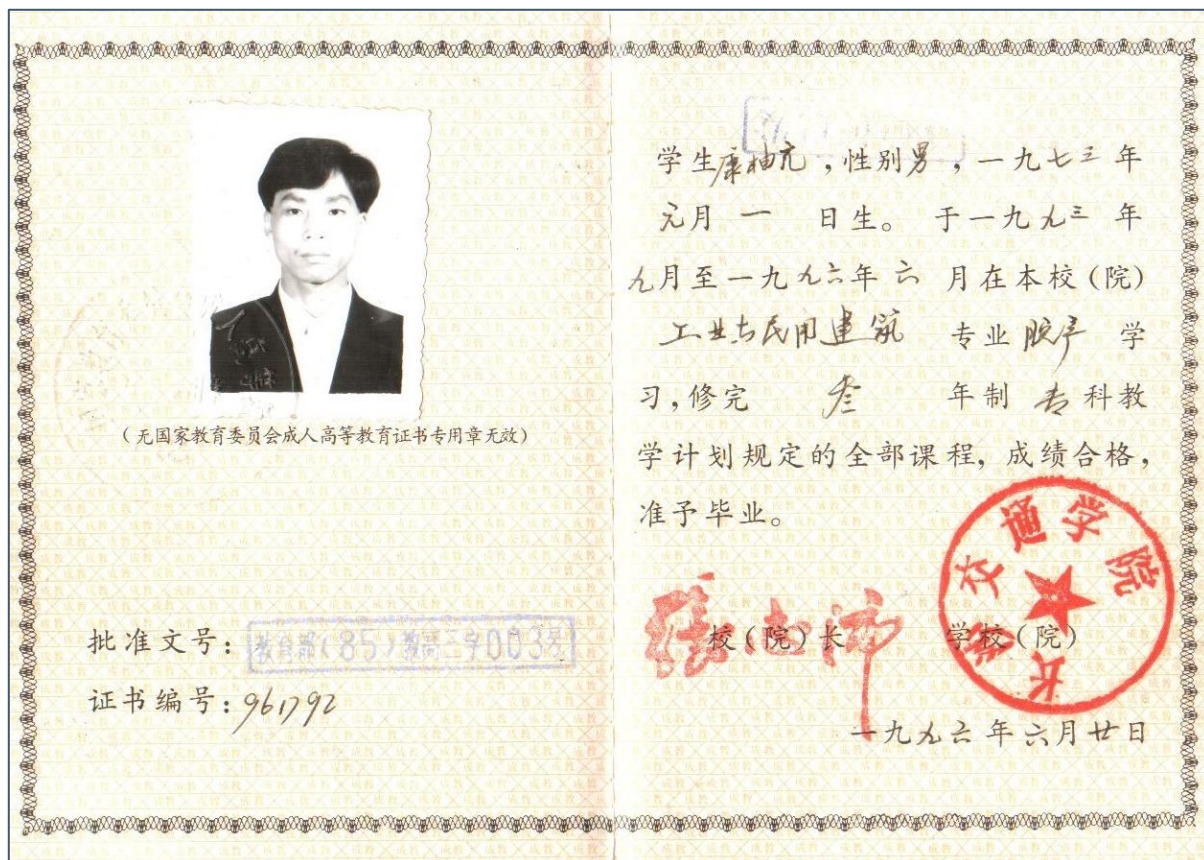 (无国家教育委员会成人高等教育证书专用章无效)
批准文号: 教育部(85)教高二字003号
证书编号: 961792
学生康柚亢,性别男,一九七三年
元月 一 日生。于一九九三年
九月至一九九六年六 月在本校(院)
工业与民用建筑 专业脱产 学
习,修完 叁 年制 专科教
学计划规定的全部课程,成绩合格,
准予毕业。
校(院)长 学校(院)
长沙交通学院
一九九六年六月廿日